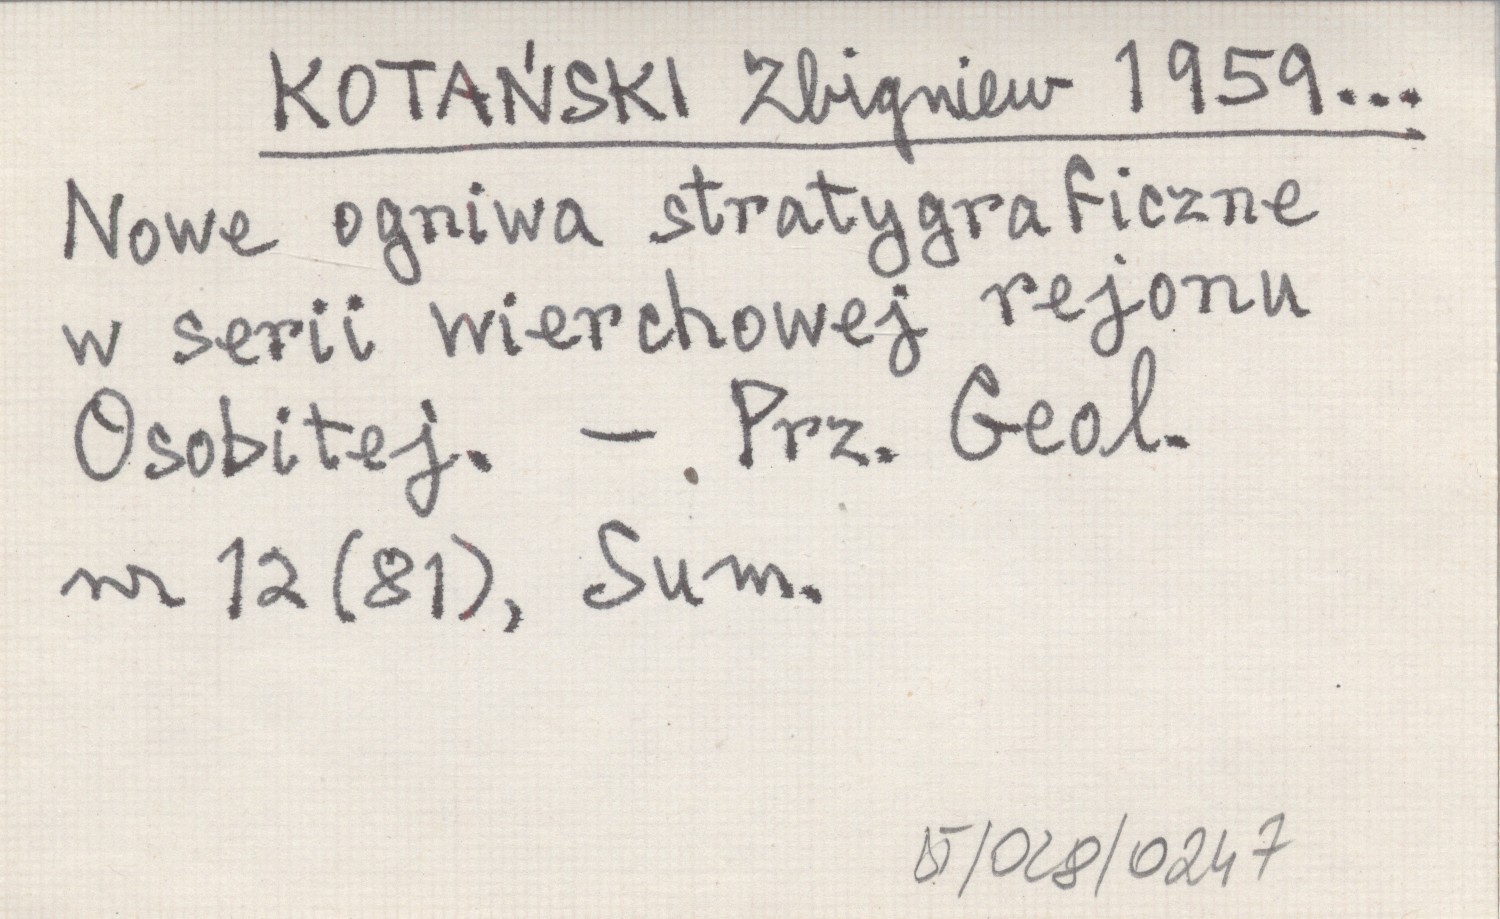 KOTAŃSKI Zbigniew 1959...
Nowe ogniwa stratygraficzne
w serii wierchowej rejonu
Osobitej. – Prz. Geol.
nr 12 (81), Sum.
/028/0247